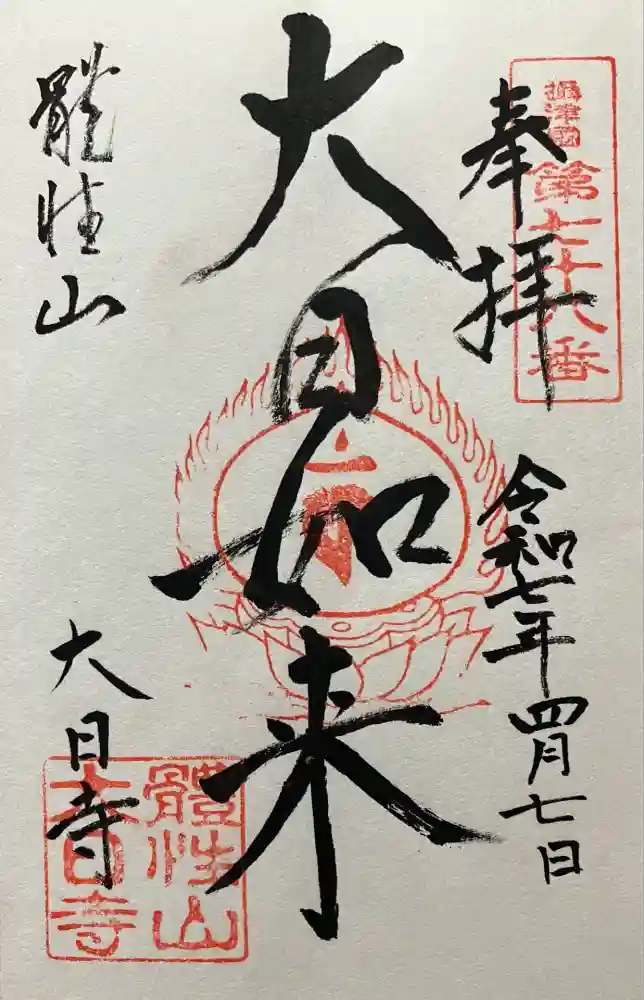 攝津國
第七十八番
奉拝
令和七年四月七日
大日如来
體性山
大日寺
體性山
大日寺